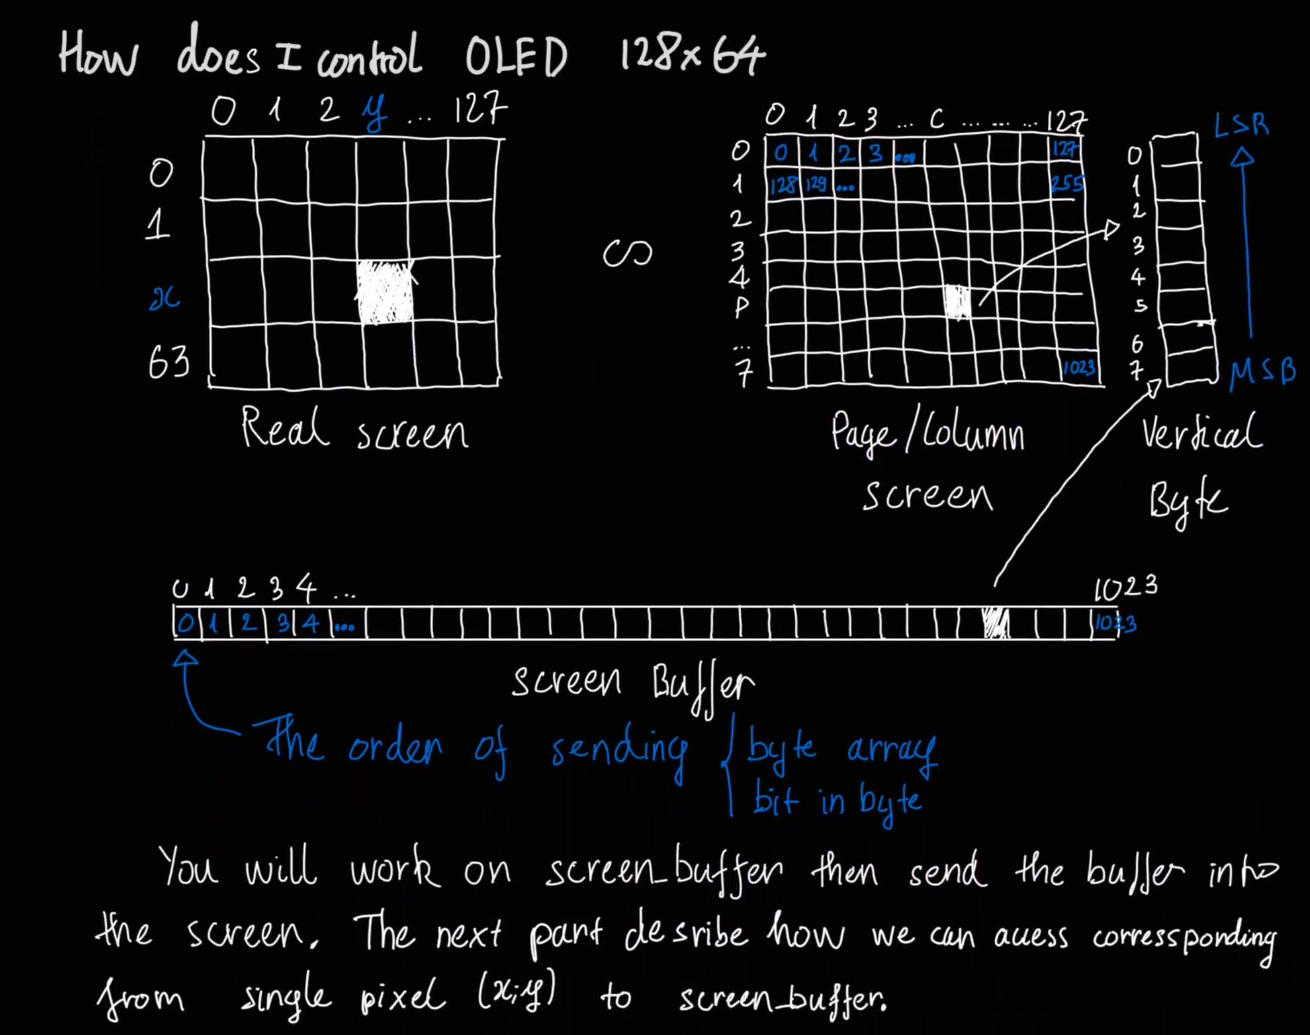 How does I control OLED 128x64
0 1 2 y ... 127
0
1
x
63
Real screen
∽
0 1 2 3 ... C ... ... ... 127
0 0 1 2 3 ... 127
1 128 129 ... 255
2
3
4
P
...
7 1023
Page/Column
screen
LSB
0
1
2
3
4
5
6
7
MSB
Vertical
Byte
0 1 2 3 4 ... 1023
0 1 2 3 4 ... 1023
Screen Buffer
The order of sending { byte array
bit in byte
You will work on screen_buffer then send the buffer into
the screen. The next part desribe how we can auess corressponding
from single pixel (x;y) to screen_buffer.